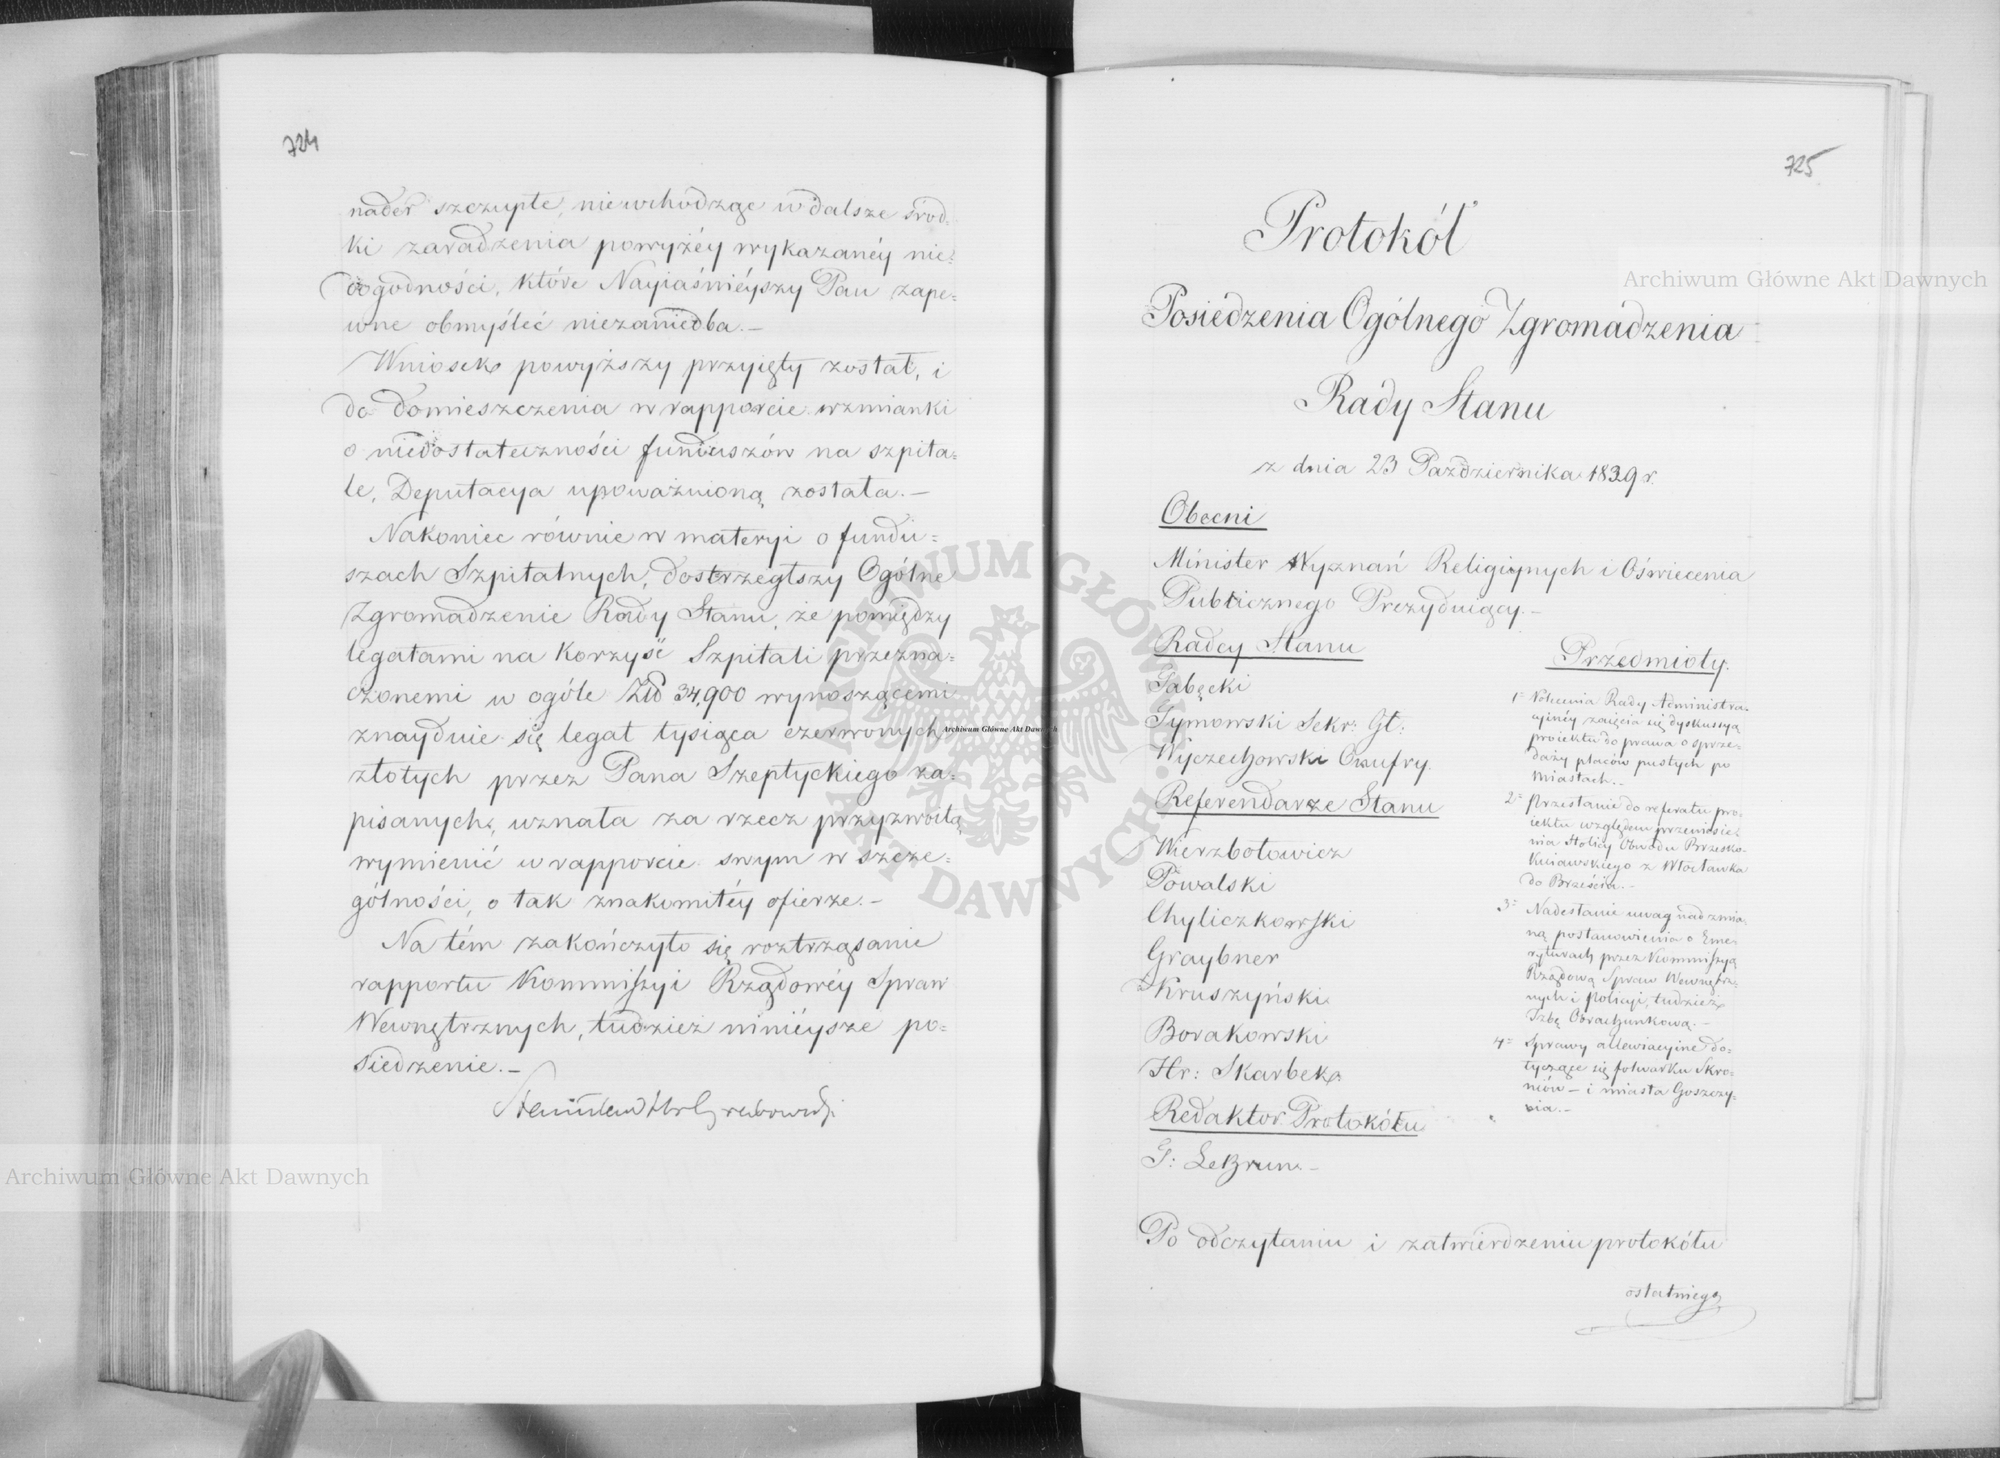 724
nader szczupłe, niewchodząc w dalsze środ-
ki zaradzenia powyżéy wykazanéy nie-
dogodności, które Nayiaśniéyszy Pan zape-
wne obmyśleć niezaniedba.—
Wniosek powyższy przyięty został, i
do domieszczenia w rapporcie wzmianki
o niedostateczności funduszów na szpita-
le, Deputacya upoważnioną została.—
Nakoniec równie w materyi o fundu-
szach Szpitalnych, dostrzegłszy Ogólne
Zgromadzenie Rady Stanu, że pomiędzy
legatami na korzyść Szpitali przezna-
czonemi w ogóle Złp 34,900 wynoszącemi
znayduie się legat tysiąca czerwonych
złotych przez Pana Szeptyckiego za-
pisanych, uznała za rzecz przyzwoitą
wymienić w rapporcie swym w szcze-
gólności, o tak znakomitéy ofierze.—
Na tém zakończyło się roztrząsanie
rapportu Kommissyi Rządowéy Spraw
Wewnętrznych, tudzież ninieysze po-
siedzenie.—
Stanisław Hr Grabowski
725
Protokół
Posiedzenia Ogólnego Zgromadzenia
Rady Stanu
z dnia 23 Października 1829 r.
Obecni
Minister Wyznań Religiynych i Oświecenia
Publicznego Prezyduiący.—
Radcy Stanu
Gabęcki
Tymowski Sekr: Gł:
Wyczechowski Onufry.
Referendarze Stanu
Wierzbołowicz
Powalski
Chyliczkowski
Graybner
Kruszyński
Borakowski
Hr: Skarbek
Redaktor Protokółu
G: LeBrun.—
Przedmioty.
1= Wolenia Rady Administra-
cyinéy zaięcia się dyskussyą
proiektu do prawa o sprze-
daży placów pustych po
miastach.—
2= Przesłanie do referatu pro-
iektu względem przeniesie-
nia Stolicy Obwodu Brzesko-
Kuiawskiego z Włocławka
do Brześcia.—
3= Nadesłanie uwag nad zmia-
ną postanowienia o Eme-
ryturach przez Kommissyą
Rządową Spraw Wewnętrz-
nych i Policyi, tudzież
Izbę Obrachunkową.—
4= Sprawy allewiacyine do-
tyczące się folwarku Skro-
niów — i miasta Goszczy-
nia.—
Po odczytaniu i zatwierdzeniu protokółu
ostatniego
Archiwum Główne Akt Dawnych
Archiwum Główne Akt Dawnych
Archiwum Główne Akt Dawnych
ARCHIWUM GŁÓWNE AKT DAWNYCH